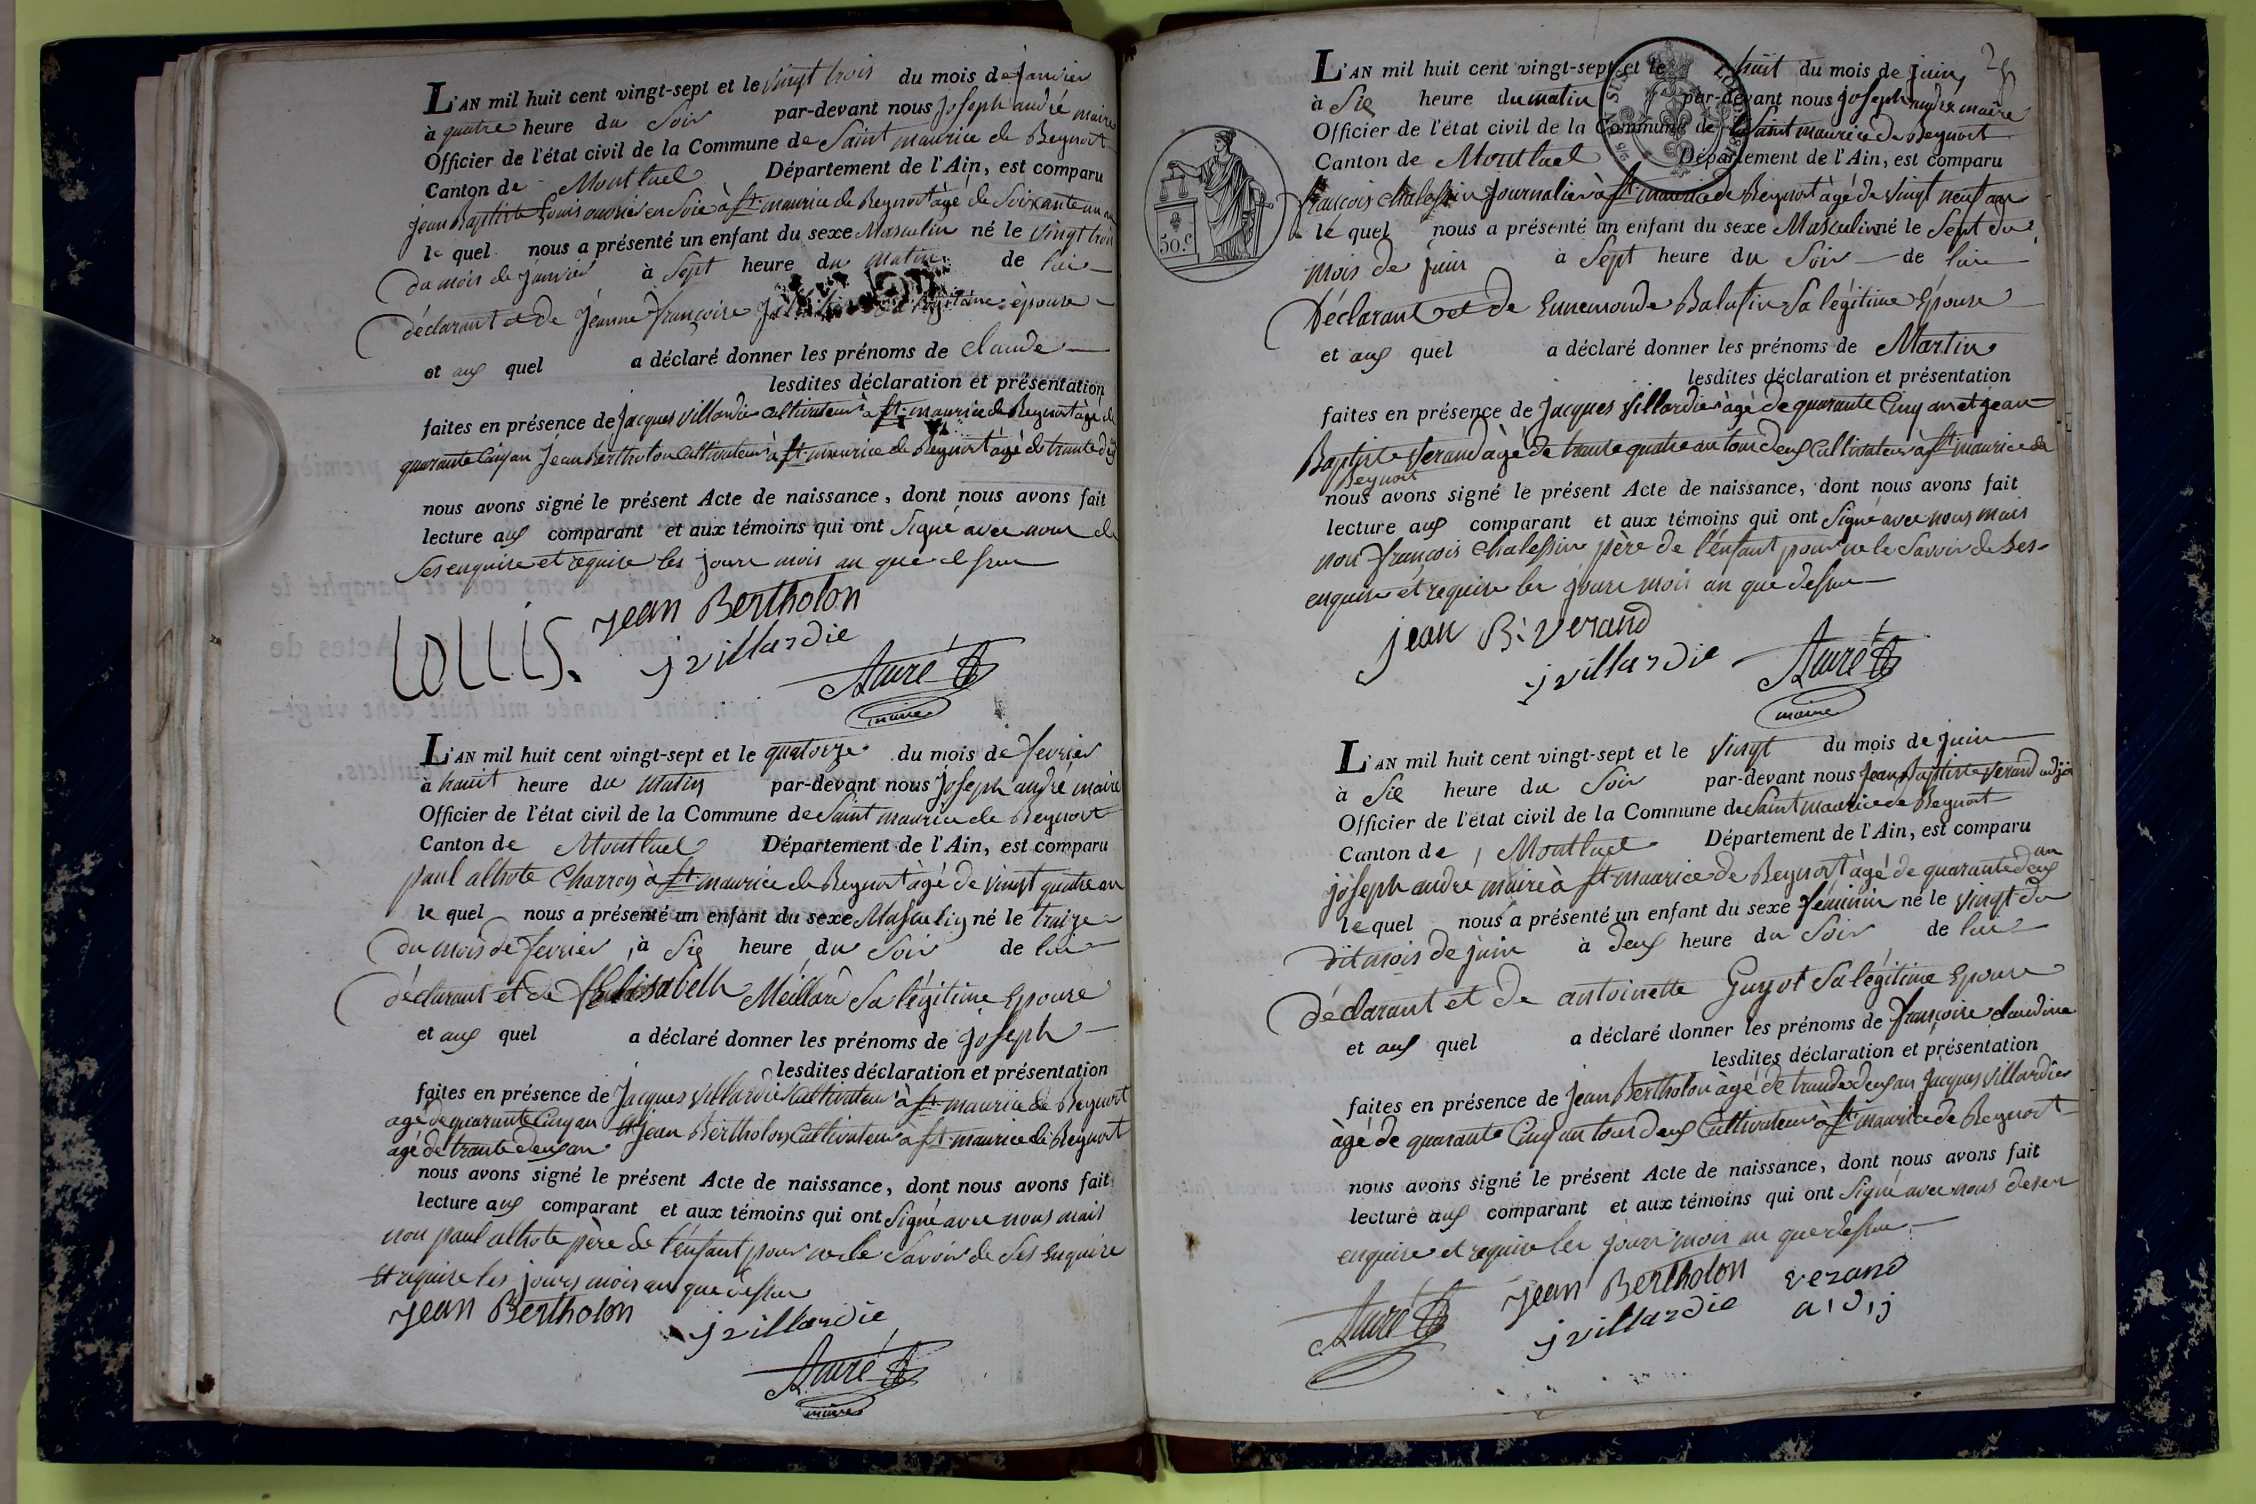 L'AN mil huit cent vingt-sept et le vingt trois du mois de janvier
à quatre heure du Soir par-devant nous joseph andré maire
Officier de l'état civil de la Commune de Saint maurice de Beynost
Canton de Montluel Département de l'Ain, est comparu
jean Baptiste Louis ouvrier en Soie à St maurice de Beynost âgé de Soixante un an
le quel nous a présenté un enfant du sexe Masculin né le vingt trois
du mois de janvier à Sept heure du matin de lui
déclarant et de jeanne françoise légitime épouse
et aux quel a déclaré donner les prénoms de claude
lesdites déclaration et présentation
faites en présence de jacques villardier cultivateur à St maurice de Beynost âgé de
quarante Cinq an jean Bertholon Cultivateur à St maurice de Beynost âgé de trante deux
nous avons signé le présent Acte de naissance, dont nous avons fait
lecture aux comparant et aux témoins qui ont Signé avec nous de
Ses enquire et require les jours mois an que dessu
LOUIS. jean Bertholon
j villardie
André
maire
L'AN mil huit cent vingt-sept et le quatorze du mois de fevrier
à huit heure du matin par-devant nous joseph andré maire
Officier de l'état civil de la Commune de Saint maurice de Beynost
Canton de Montluel Département de l'Ain, est comparu
paul alhote Charron à St maurice de Beynost âgé de vingt quatre an
le quel nous a présenté un enfant du sexe Masculin né le traize
du mois de fevrier à Six heure du Soir de lui
déclarant et de Elisabeth Sa légitime Epouse
et aux quel a déclaré donner les prénoms de joseph
lesdites déclaration et présentation
faites en présence de jacques villardier Cultivateur à St maurice de Beynost
âgé de quarante Cinq an et jean Bertholon Cultivateur à St maurice de Beynost
âgé de trante deux an
nous avons signé le présent Acte de naissance, dont nous avons fait
lecture aux comparant et aux témoins qui ont Signé avec nous mais
non paul alhote père de l'enfant pour ne le Savoir de Ses enquire
et require les jours mois an que dessu
jean Bertholon j villardie
André
maire
L'AN mil huit cent vingt-sept et le huit du mois de juin
à Six heure du matin par-devant nous joseph andré maire
Officier de l'état civil de la Commune de Saint maurice de Beynost
Canton de Montluel Département de l'Ain, est comparu
françois chalessin journalier à St maurice de Beynost âgé de vingt neuf an
le quel nous a présenté un enfant du sexe Masculin né le Sept du
mois de juin à Sept heure du Soir de lui
50.c
Déclarant et de Ennemonde Balufin Sa légitime Epouse
et aux quel a déclaré donner les prénoms de Martin
lesdites déclaration et présentation
faites en présence de jacques villardier âgé de quarante Cinq an et jean
Baptiste verand âgé de trante quatre an tous deux Cultivateur à St maurice de
Beynost
nous avons signé le présent Acte de naissance, dont nous avons fait
lecture aux comparant et aux témoins qui ont Signé avec nous mais
non françois chalessin père de l'enfant pour ne le Savoir de Ses
enquire et require les jours mois an que dessu
jean B. verand
j villardie André
maire
L'AN mil huit cent vingt-sept et le vingt du mois de juin
à Six heure du Soir par-devant nous jean Baptiste verand adjoi
Officier de l'état civil de la Commune de Saint maurice de Beynost
Canton de Montluel Département de l'Ain, est comparu
joseph andre maire à St maurice de Beynost âgé de quarante deux an
le quel nous a présenté un enfant du sexe féminin né le vingt du
dit mois de juin à deux heure du Soir de lui
Déclarant et de antoinette Guyot Sa légitime Epouse
et aux quel a déclaré donner les prénoms de françoise claudine
lesdites déclaration et présentation
faites en présence de jean Bertholon âgé de trante deux an jacques villardier
âgé de quarante Cinq an tous deux Cultivateur à St maurice de Beynost
nous avons signé le présent Acte de naissance, dont nous avons fait
lecture aux comparant et aux témoins qui ont Signé avec nous de ses
enquire et require les jours mois an que dessu
André jean Bertholon verand
j villardie a d j